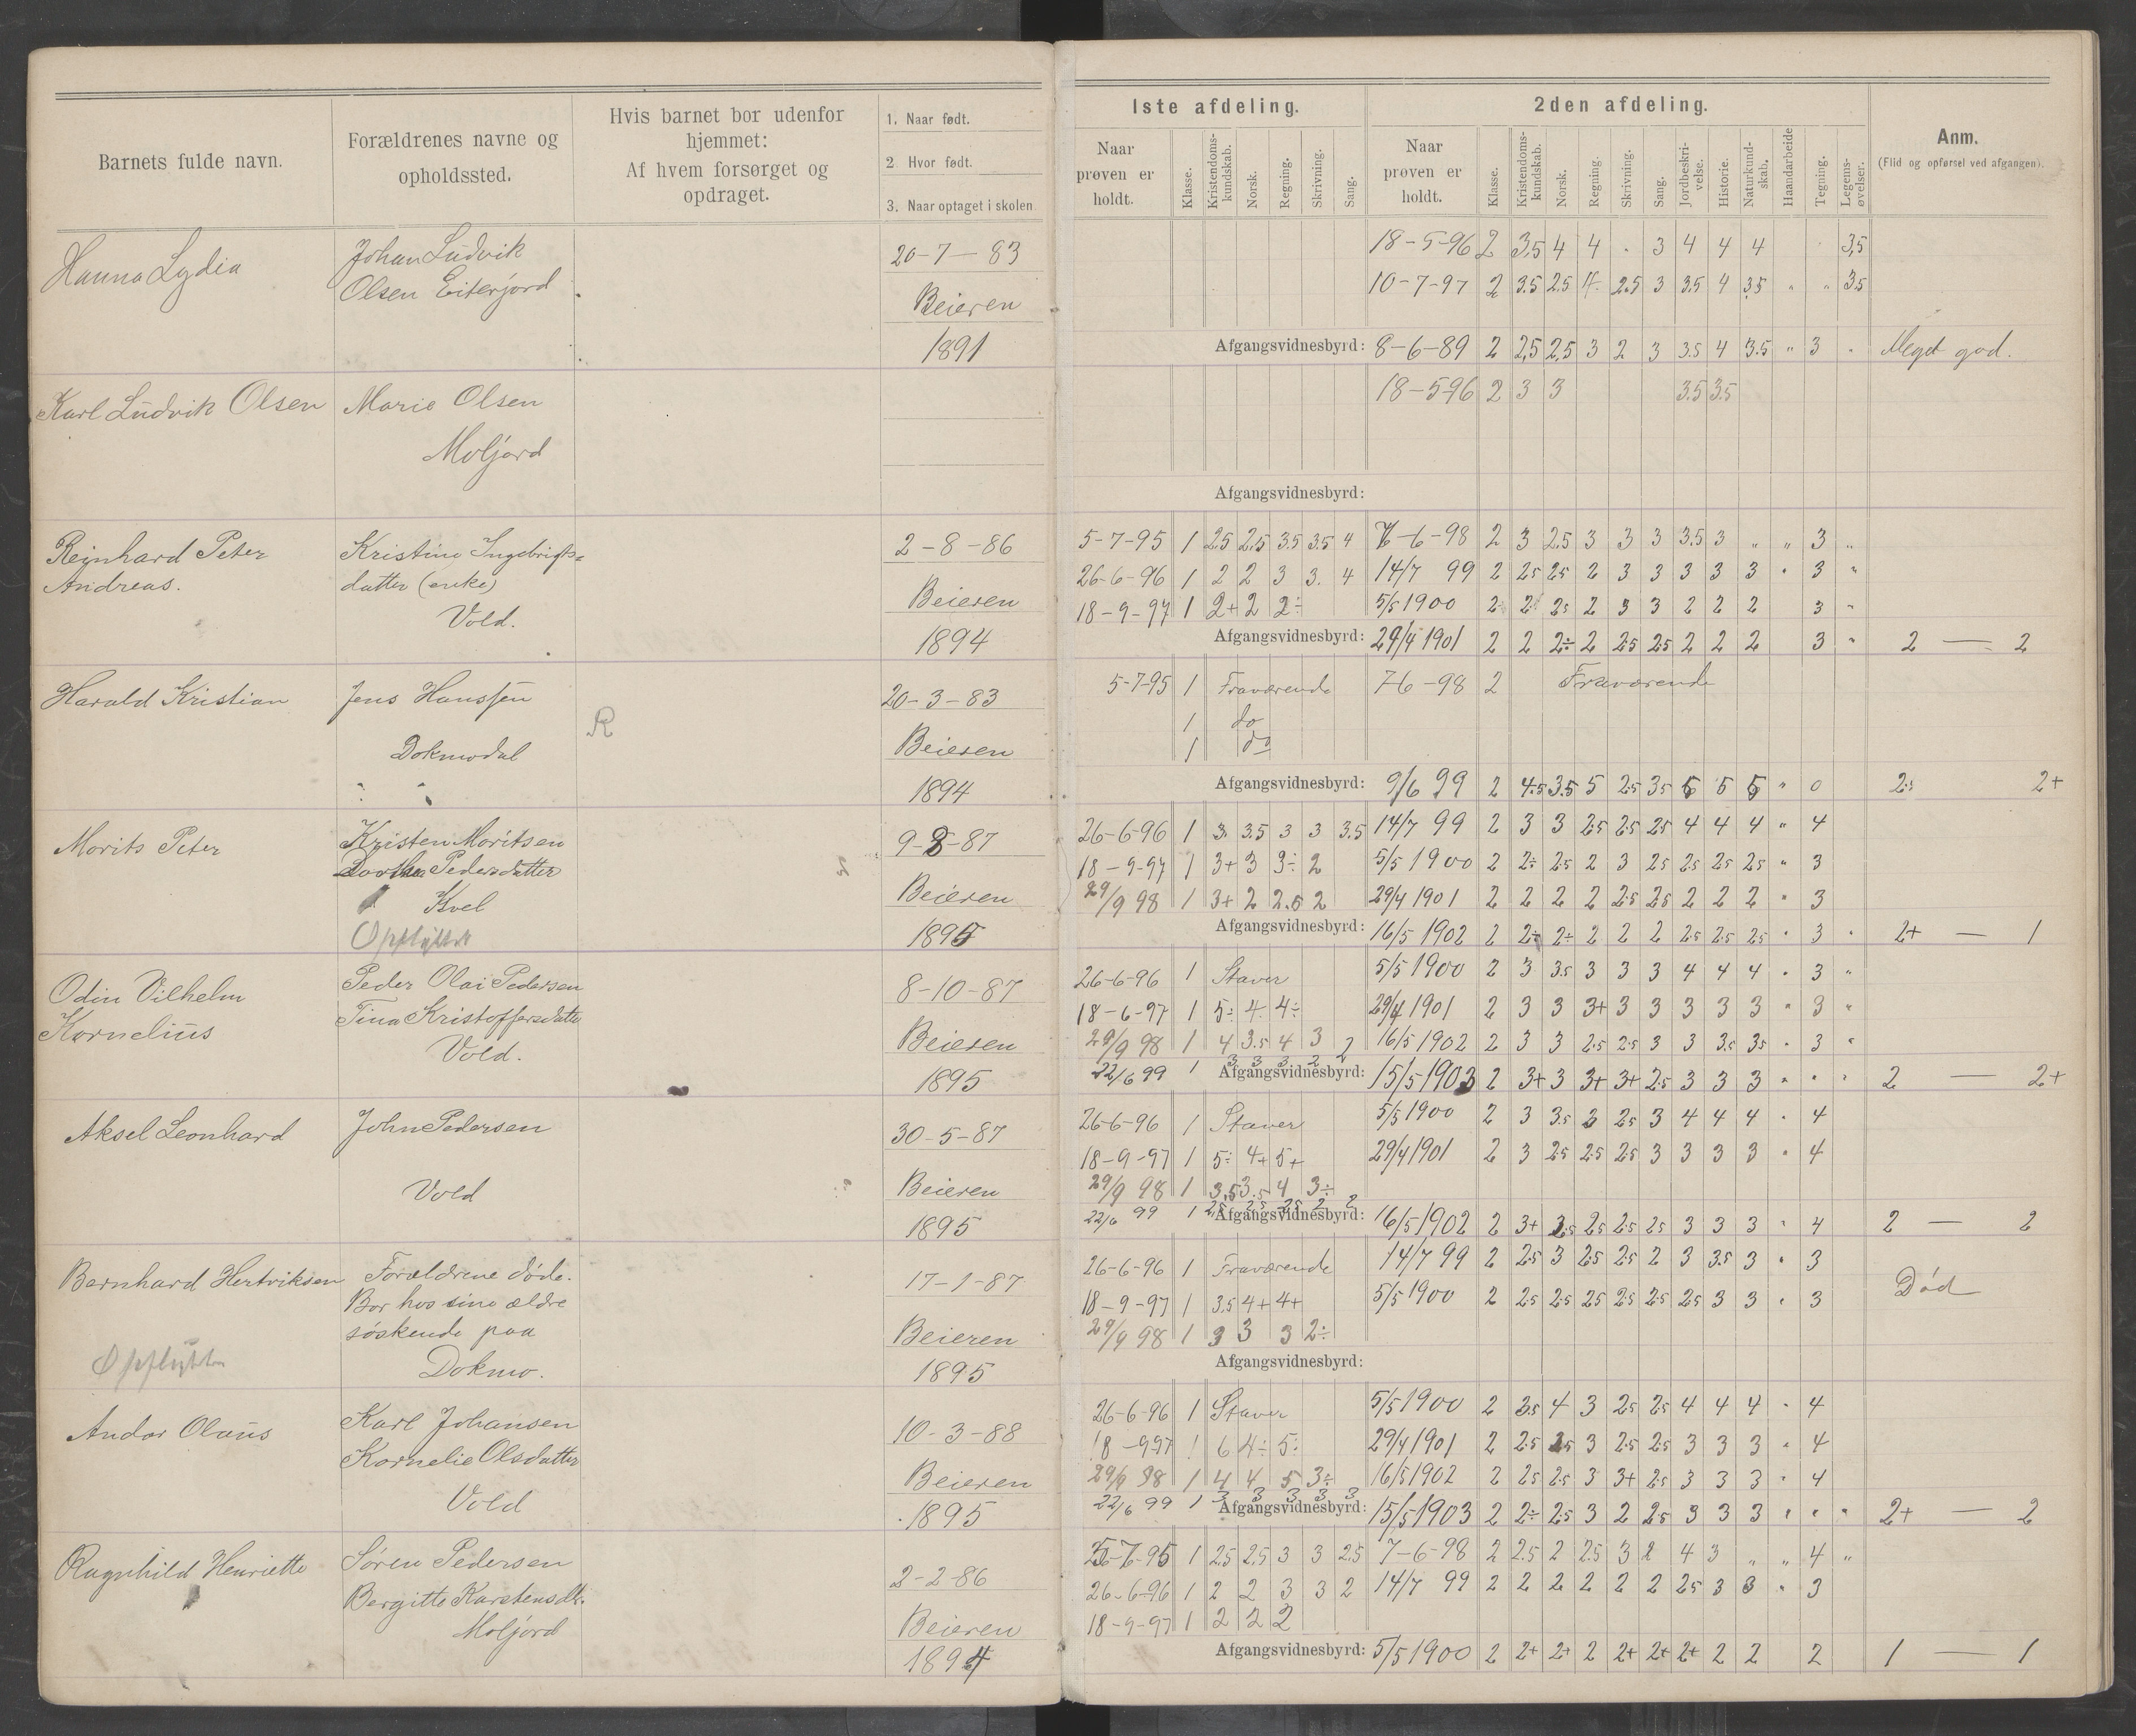 Barnets fulde navn.
Forældrenes navne og
opholdssted.
Hvis barnet bor udenfor
hjemmet:
Af hvem forsørget og
opdraget.
1. Naar født.
2 Hvor født.
3. Naar optaget i skolen
1ste afdeling.
Naar
prøven er
holdt.
Klasse.
Kristendoms-
kundskab.
Norsk.
Regning.
Skrivning.
Sang.
2den afdeling.
Naar
prøven er
holdt.
Klasse.
Kristendoms-
kundskab.
Norsk.
Regning.
Skrivning.
Sang.
Jordbeskri-
velse.
Historie.
Naturkund-
skab.
Haandarbeide
Tegning.
Legems-
øvelser.
Anm.
(Flid og opførsel ved afgangen).
Hanna Lydia
Johan Ludvik
Olsen Eiterjord
20-7-83
Beieren
1891
18-5-96 2 3,5 4 4 . 3 4 4 4 3,5
10-7-97 2 3.5 2.5 4. 2.5 3 3.5 4 3.5 " " 3.5
Afgangsvidnesbyrd: 8-6-89 2 2,5 2,5 3 2 3 3.5 4 3.5 " 3 " Meget god.
Karl Ludvik Olsen
Marie Olsen
Moljord
18-5-96 2 3 3 3.5 3.5
Afgangsvidnesbyrd:
Reinhard Peter
Andreas.
Kristine Ingebrigts=
datter (enke)
Vold.
2-8-86
Beieren
1894
5-7-95 1 2.5 2.5 3.5 3.5 4 7-6-98 2 3 2.5 3 3 3 3.5 3 " " 3 "
26-6-96 1 2 2 3 3. 4 14/7 99 2 2.5 2.5 2 3 3 3 3 3 " 3 "
18-9-97 1 2+ 2 2÷ 5/5 1900 2 2 2.5 2 3 3 2 2 2 3 "
Afgangsvidnesbyrd: 29/4 1901 2 2 2÷ 2 2.5 2.5 2 2 2 3 " 2 — 2
Harald Kristian
Jens Hanssen
Dokmodal
R
20-3-83
Beieren
1894
5-7-95 1 Fraværende 7-6-98 2 Fraværende
1 do
1 do
Afgangsvidnesbyrd: 9/6 99 2 4.5 3.5 5 2.5 3.5 5 5 5 " 0 2.5 2+
Morits Peter
Kristen Moritsen
Dorthea Pedersdatter
Kvel
Opflyttet
9-8-87
Beieren
1895
26-6-96 1 3. 3.5 3 3 3.5 14/7 99 2 3 3 2.5 2.5 2.5 4 4 4 " 4
18-9-97 1 3+ 3 3÷ 2 5/5 1900 2 2÷ 2.5 2 3 2.5 2.5 2.5 2.5 " 3
29/9 98 1 3+ 2 2.5 2 29/4 1901 2 2 2 2 2.5 2.5 2 2 2 " 3
Afgangsvidnesbyrd: 16/5 1902 2 2÷ 2÷ 2 2 2 2.5 2.5 2.5 " 3 " 2+ — 1
Odin Vilhelm
Kornelius
Peder Olai Pedersen
Tina Kristoffersdatte
Vold.
8-10-87
Beieren
1895
26-6-96 1 Staver 5/5 1900 2 3 3.5 3 3 3 4 4 4 " 3 "
18-6-97 1 5÷ 4 4÷ 29/4 1901 2 3 3 3+ 3 3 3 3 3 " 3 "
29/9 98 1 4 3.5 4 3 2 16/5 1902 2 3 3 2.5 2.5 3 3 3.5 3.5 " 3 "
22/6 99 1 3 3 3 2 Afgangsvidnesbyrd: 15/5 1903 2 3+ 3 3+ 3+ 2.5 3 3 3 " " " 2 — 2+
Aksel Leonhard
John Pedersen
Vold
30-5-87
Beieren
1895
26-6-96 1 Staver 5/5 1900 2 3 3.5 3 2.5 3 4 4 4 " 4
18-9-97 1 5÷ 4+ 5+ 29/4 1901 2 3 2.5 2.5 2.5 3 3 3 3 " 4
29/9 98 1 3.5 3.5 4 3÷
22/6 99 1 2.5 2.5 2.5 2 2 Afgangsvidnesbyrd: 16/5 1902 2 3+ 3.5 2.5 2.5 2.5 3 3 3 " 4 2 — 2
Bernhard Hertviksen
Opflyttet
Forældrene døde.
Bor hos sine ældre
søskende paa
Dokmo.
17-1-87
Beieren
1895
26-6-96 1 Fraværende 14/7 99 2 2.5 3 2.5 2.5 2 3 3.5 3 " 3
18-9-97 1 3.5 4+ 4+ 5/5 1900 2 2.5 2.5 2.5 2.5 2.5 2.5 3 3 " 3 Død
29/9 98 1 3 3 3 2÷
Afgangsvidnesbyrd:
Andor Olaus
Karl Johansen
Kornelie Olsdatter
Vold
10-3-88
Beieren
1895
26-6-96 1 Staver 5/5 1900 2 3.5 4 3 2.5 2.5 4 4 4 " 4
18-9-97 1 6 4÷ 5÷ 29/4 1901 2 2.5 2.5 3 2.5 2.5 3 3 3 " 4
29/9 98 1 4 4 5 3÷ 16/5 1902 2 2.5 2.5 3 3+ 2.5 3 3 3 " 4
22/6 99 1 3 3 3 3 3 Afgangsvidnesbyrd: 15/5 1903 2 2÷ 2.5 3 2 2.5 3 3 3 " " " 2+ — 2
Ragnhild Henriette
Søren Pedersen
Bergitte Karstensdtr.
Moljord
2-2-86
Beieren
1894
5-7-95 1 2.5 2.5 3 3 2.5 7-6-98 2 2.5 2 2.5 3 2 4 3 " " 4 "
26-6-96 1 2 2 3 3 2 14/7 99 2 2 2 2 2 2 2.5 3 3 " 3
18-9-97 1 2 2 2
Afgangsvidnesbyrd: 5/5 1900 2 2+ 2+ 2 2+ 2+ 2+ 2 2 2 1 — 1